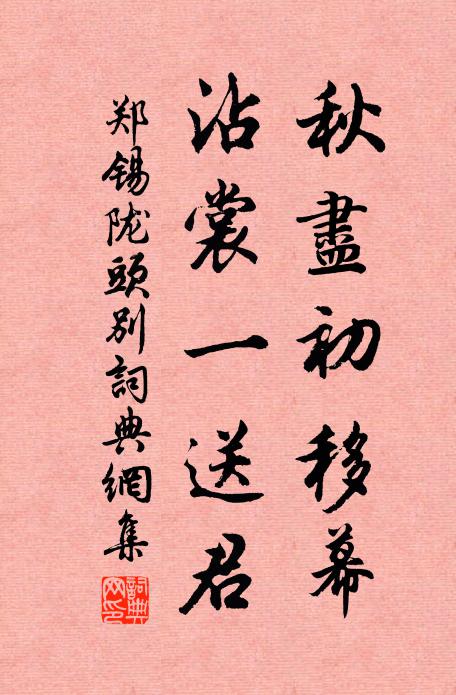 秋盡初移幕
沾裳一送君
郑锡陇頭别詞典網集
詞典网印